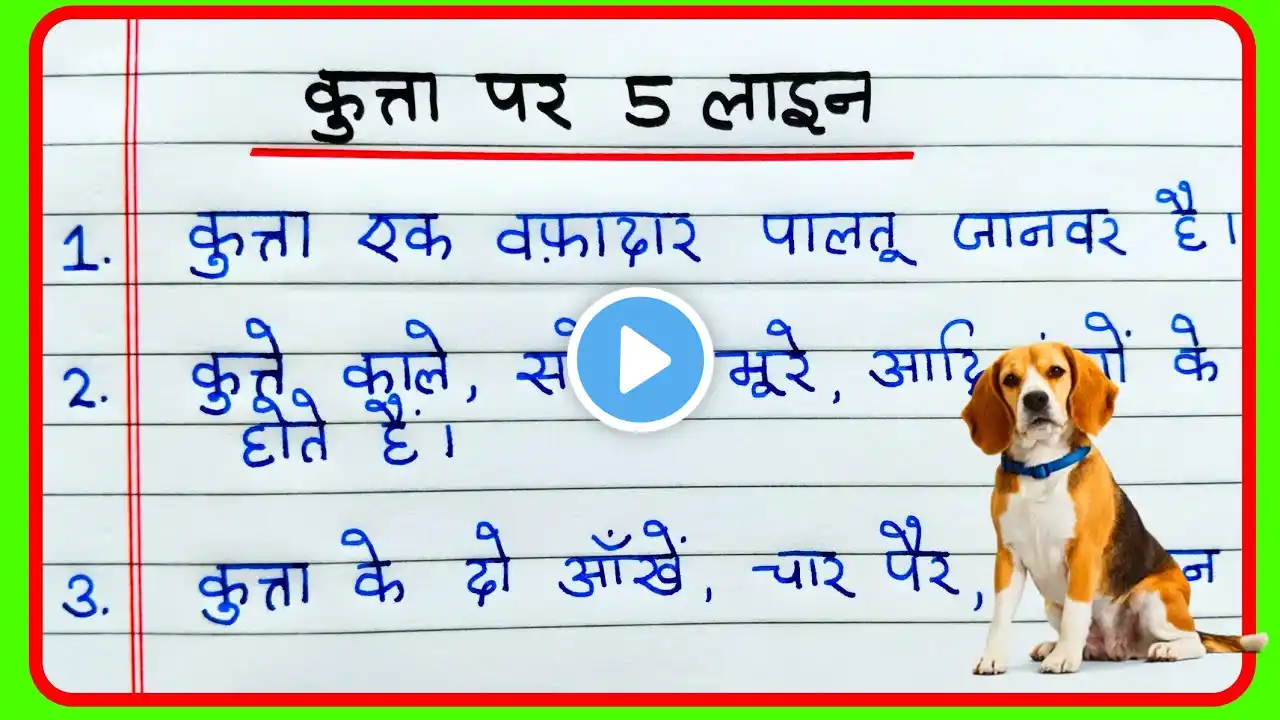 कुत्ता पर 5 लाइन
1. कुत्ता एक वफ़ादार पालतू जानवर है।
2. कुत्ते काले, मूरे, के
होते हैं।
3. कुत्ता के दो आँखें, चार पैर,